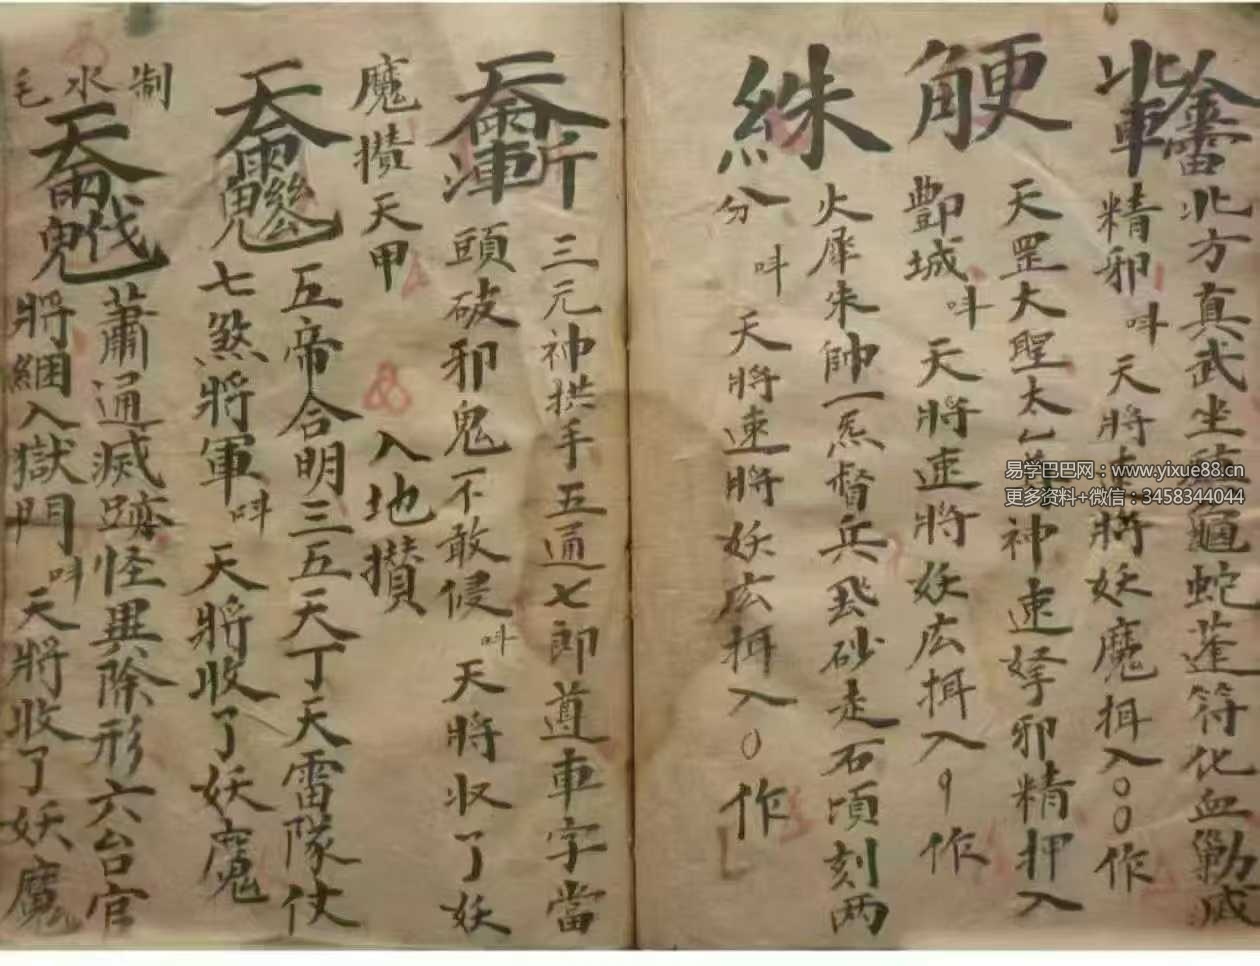 北方真武坐騰龜蛇蓬符化血勦滅
精邪
呌
天將速將妖魔揖入〇〇作
觓
天罡大聖太乙尊神速拏邪精押入
酆城
呌
天將速將妖広揖入九作
絑
火犀朱帥一炁督兵飛砂走石頃刻两
分
呌
天將速將妖広揖入〇作
三元神拱手五通七郎遵車字當
頭破邪鬼不敢侵
呌
天將収了妖
魔攢
天甲
入地攢
五帝合明三五天丁天雷隊仗
七煞將軍
呌
天將收了妖魔
制水毛
蕭通滅跡怪異除形六台官
將綑入獄門
呌
天將收了妖魔
易学巴巴网：www.yixue88.cn
更多资料+微信：3458344044